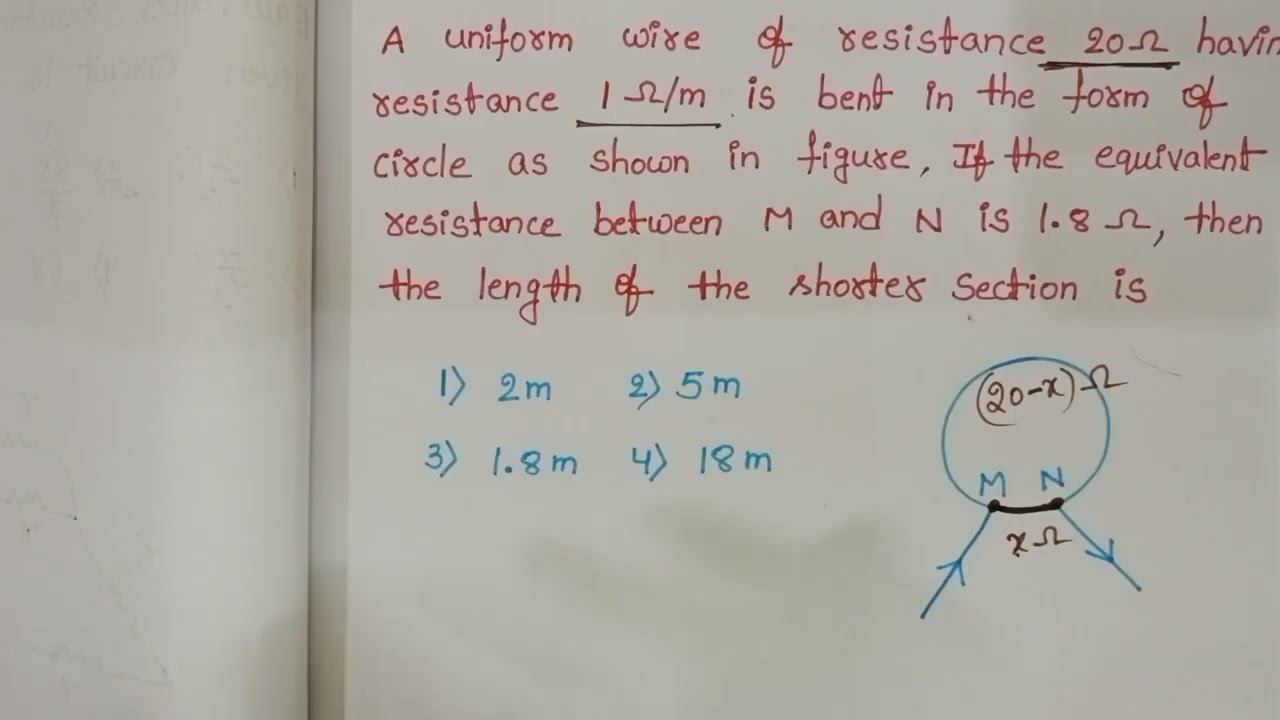 A uniform wire of resistance 20Ω havin
resistance 1 Ω/m is bent in the form of
circle as shown in figure, If the equivalent
resistance between M and N is 1.8 Ω, then
the length of the shorter section is
1) 2m 2) 5m
3) 1.8m 4) 18m
(20-x)Ω
M N
xΩ